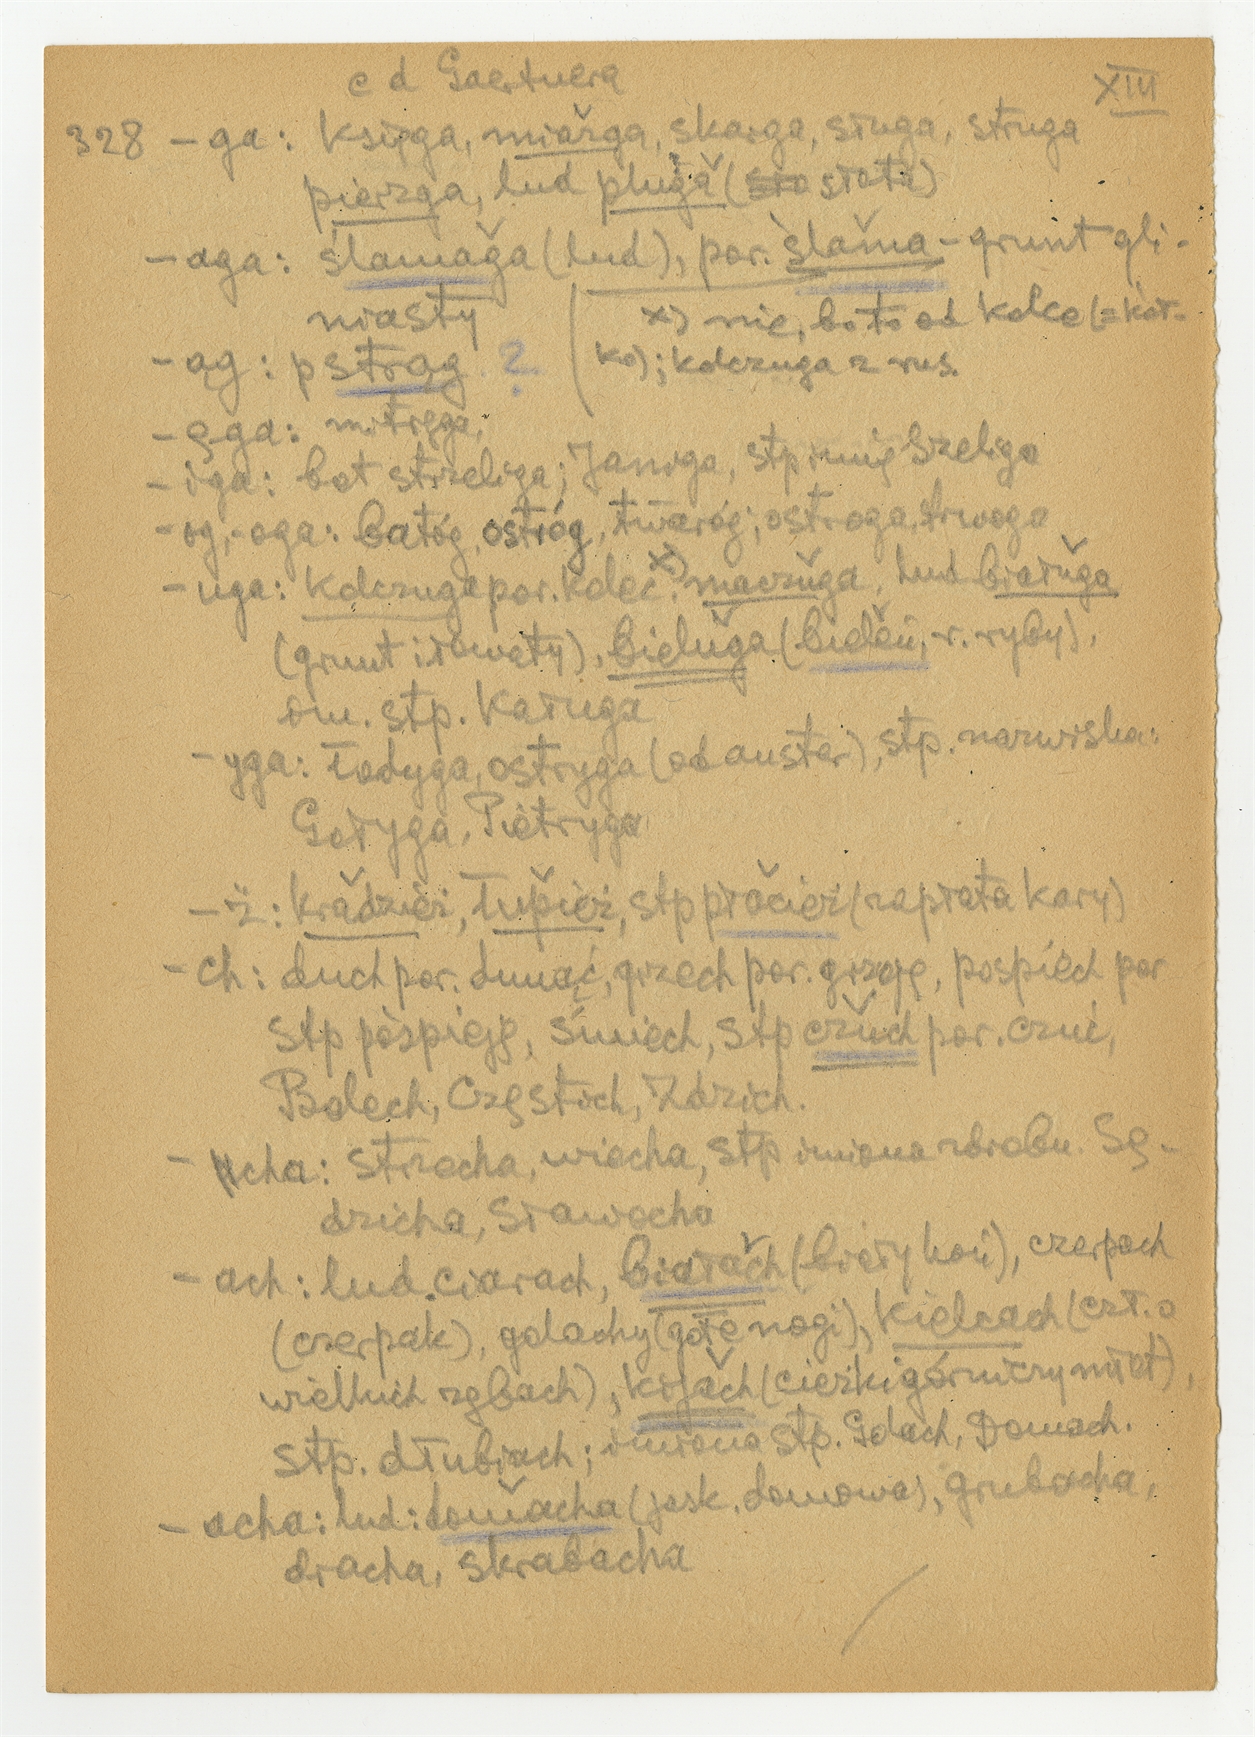 c d Gaertnera
XIII
328 - ga: księga, miazga, skarga, sługa, struga
pierzga, lud pluga (sło słota)
- aga: ślamaga (lud), por. ślama - grunt gli-
niasty
x) nie, bo to od kolce (= kół-
ko); kolczuga z rus.
- ąg: pstrąg ?
- ęga: mitręga,
- iga: bot strzeliga; Janiga, stp imię Szeliga
- og, -oga: batóg, ostróg, twaróg; ostroga, trwoga
- uga: kolczuga por. kolec x), maczuga, lud białuga
(grunt iłowaty), bieluga (bieleń, r. ryby),
om. stp. Kaługa
- yga: łodyga, ostryga (od auster), stp. nazwiska:
Gołyga, Pietryga
- ż: kradzież, łupież, stp płacież (zapłata kary)
- ch: duch por. dunąć, grzech por. grzeję, pospiech por
stp pospieję, śmiech, stp czuch por. czuć,
Bolech, Częstoch, Zdzich.
- cha: strzecha, wiecha, stp imiona zdrobn. Sę-
dzicha, Sławocha
- ach: lud. ciarach, białach (biały koń), czerpach
(czerpak), golachy (gołe nogi), kielcach (czł. o
wielkich zębach), kijach (ciężki górniczy młot),
stp. dłubiach; imiona stp. Golach, Domach.
- acha: lud: domacha (jask. domowa), grubacha,
dracha, skrabacha